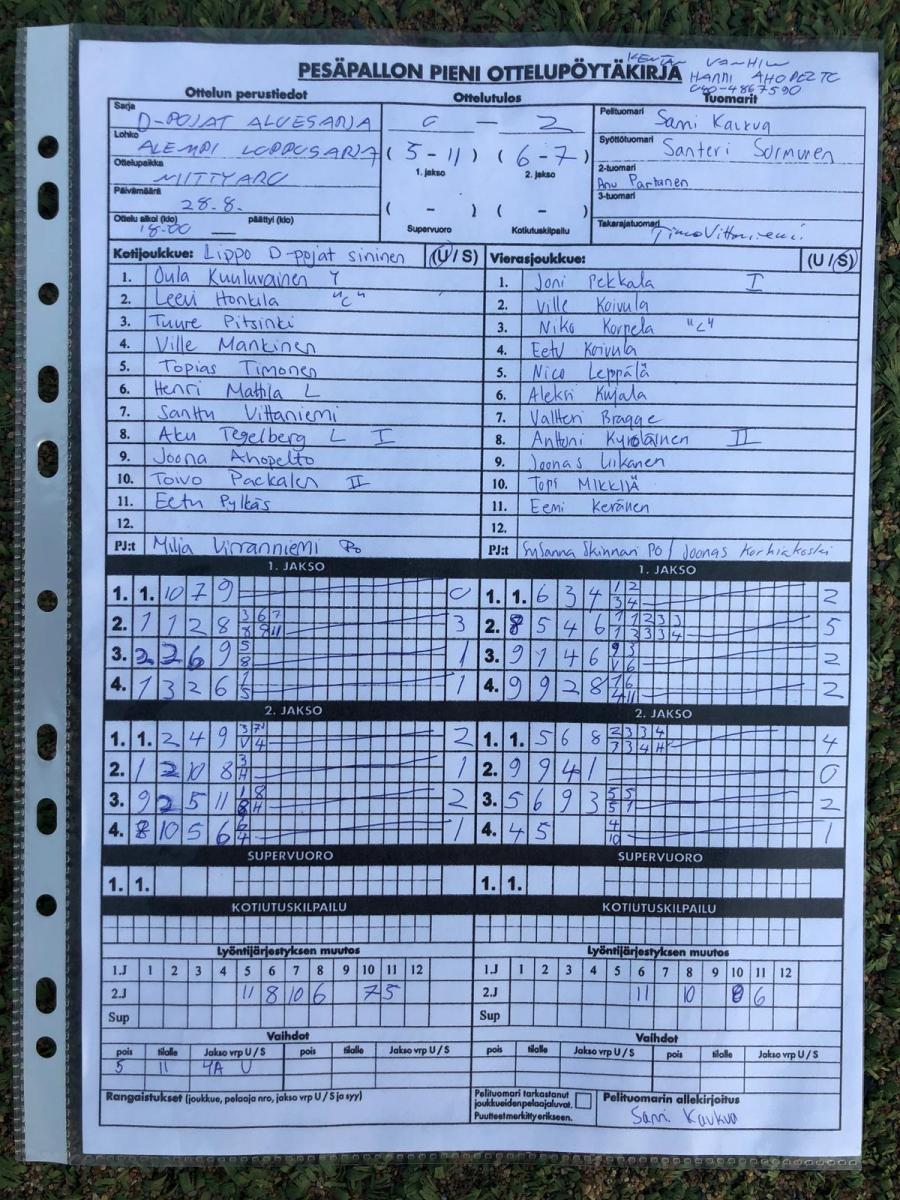 PESÄPALLON PIENI OTTELUPÖYTÄKIRJA
HANNI AHOPELTO
040-4867590
Ottelun perustiedot
Ottelutulos
Tuomarit
Sarja
D-POJAT ALUESARJA
Lohko
ALEMPI LOPPUSARJA
Ottelupaikka
NIITTYARO
Päivämäärä
28.8.
Ottelu alkoi (klo) päättyi (klo)
18.00
0 - 2
( 5 - 11 ) ( 6 - 7 )
1. jakso 2. jakso
( - ) ( - )
Supervuoro Kotiutuskilpailu
Pelituomari
Sanni Kaukua
Syöttötuomari
Santeri Sormunen
2-tuomari
Anu Partanen
3-tuomari
Takarajatuomari
Timo Vittaniemi
Kotijoukkue: Lippo D-pojat sininen (U / S)
1. Oula Kuuluvainen Y
2. Leevi Honkila "C"
3. Tuure Pitsinki
4. Ville Mankinen
5. Topias Timonen
6. Henri Mattila L
7. Santtu Vittaniemi
8. Aku Tegelberg L I
9. Joona Ahopelto
10. Toivo Packalen II
11. Eetu Pylkäs
12.
PJ:t Milja Virranniemi Po
Vierasjoukkue: (U / S)
1. Joni Pekkala I
2. Ville Koivula
3. Niko Korpela "C"
4. Eetu Koivula
5. Nico Leppälä
6. Aleksi Kujala
7. Valtteri Bragge
8. Anttoni Kyröläinen II
9. Joonas Liikanen
10. Topi MIKKILÄ
11. Eemi Keränen
12.
PJ:t Susanna Skinnari PO / Joonas Korhiakoski
1. JAKSO
1. 1. 10 7 9 0
2. 1 1 2 8 3 6 7 3
8 8 11
3. 2 2 6 9 5 1
8
4. 1 3 2 6 1 1
5
1. JAKSO
1. 1. 6 3 4 1 2 2
3 4
2. 8 5 4 6 1 1 2 3 3 5
1 2 3 3 4
3. 9 7 4 6 9 3 2
V 6
4. 9 9 2 8 1 6 2
4 11
2. JAKSO
1. 1. 2 4 9 3 7 2
V 4
2. 1 2 10 8 3 1
H
3. 9 2 5 11 1 8 2
8 H
4. 8 10 5 6 6 1
4
2. JAKSO
1. 1. 5 6 8 2 3 3 4 4
3 3 4 H
2. 9 9 4 1 0
3. 5 6 9 3 5 5 2
5 1
4. 4 5 4 1
10
SUPERVUORO
1. 1.
SUPERVUORO
1. 1.
KOTIUTUSKILPAILU
KOTIUTUSKILPAILU
Lyöntijärjestyksen muutos
1.J 1 2 3 4 5 6 7 8 9 10 11 12
2.J 11 8 10 6 7 5
Sup
Lyöntijärjestyksen muutos
1.J 1 2 3 4 5 6 7 8 9 10 11 12
2.J 11 10 8 6
Sup
Vaihdot
pois tilalle Jakso vrp U / S pois tilalle Jakso vrp U / S
5 11 4A U
Vaihdot
pois tilalle Jakso vrp U / S pois tilalle Jakso vrp U / S
Rangaistukset (joukkue, pelaaja nro, jakso vrp U / S ja syy)
Pelituomari tarkastanut
joukkueiden pelaajaluvat.
Puutteet merkitty erikseen.
Pelituomarin allekirjoitus
Sanni Kaukua